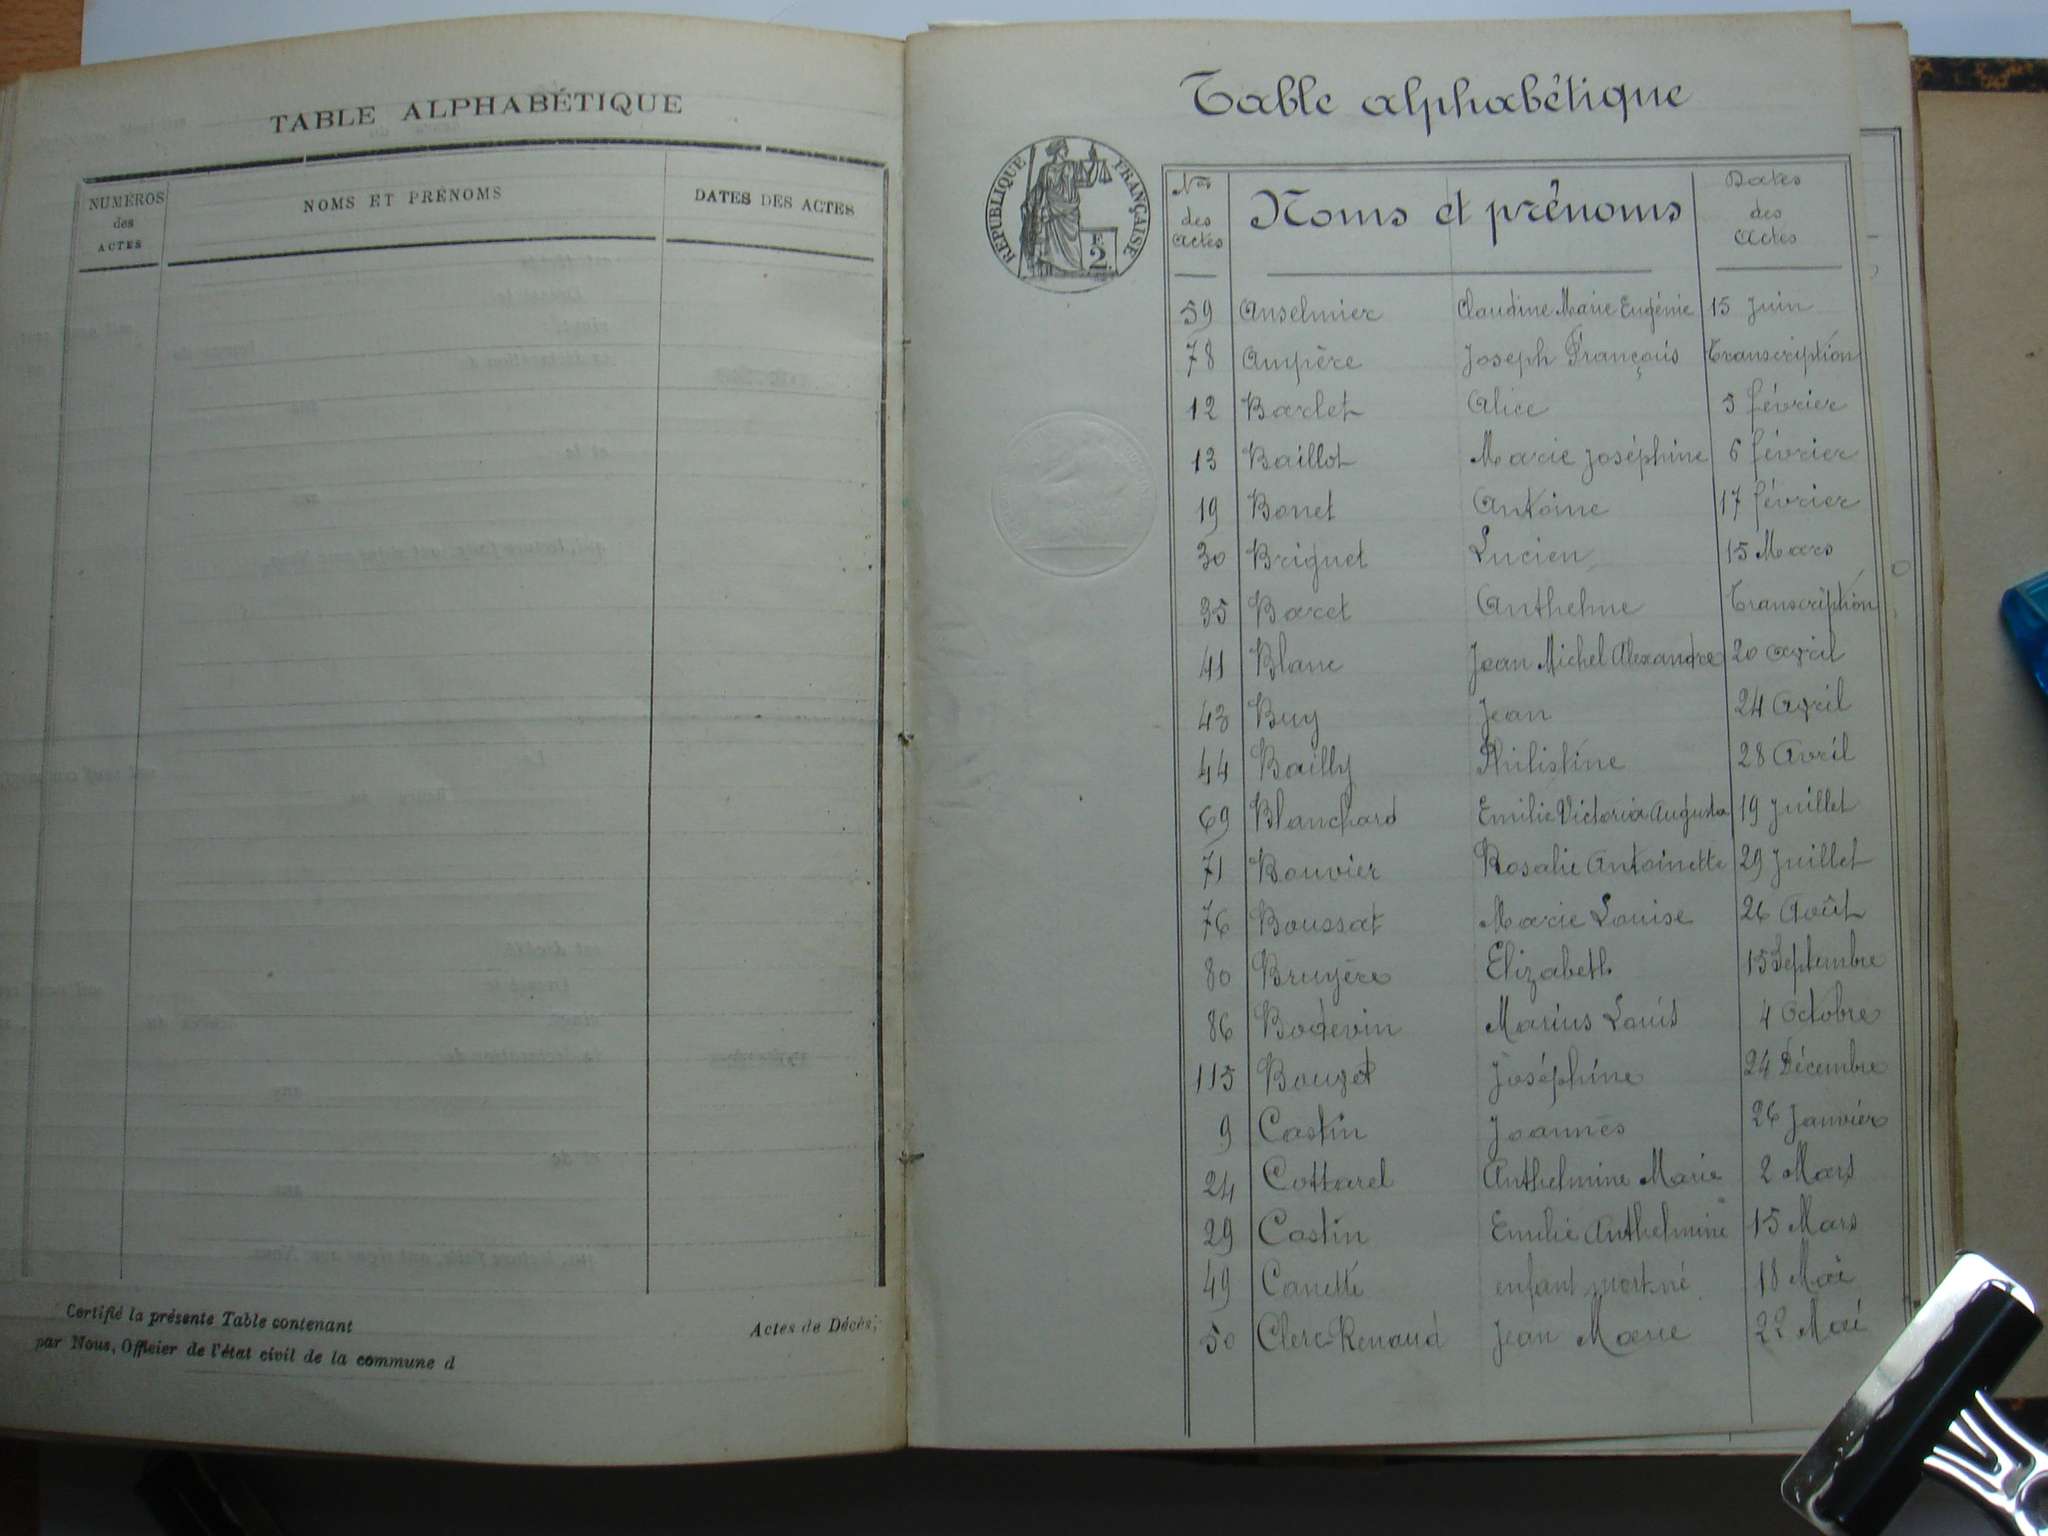 TABLE ALPHABÉTIQUE
NUMÉROS
des
ACTES
NOMS ET PRÉNOMS
DATES DES ACTES
Certifié la présente Table contenant
Actes de Décès,
par Nous, Officier de l'état civil de la commune d
Table alphabétique
RÉPUBLIQUE FRANÇAISE
F.
2
Nos
des
Actes
Noms et prénoms
Dates
des
Actes
59 Anselmier Claudine Marie Eugénie 15 Juin
78 Ampère Joseph François Transcription
12 Barlet Alice 5 février
13 Baillot Marie Joséphine 6 février
19 Bonet Antoine 17 février
30 Briguet Lucien 15 Mars
35 Baret Anthelme Transcription
41 Blanc Jean Michel Alexandre 20 avril
43 Buy Jean 24 Avril
44 Bailly Philistine 28 Avril
69 Blanchard Emilie Victoria Augusta 19 Juillet
71 Bouvier Rosalie Antoinette 29 Juillet
76 Boussat Marie Louise 26 Août
80 Bruyère Elizabeth 15 Septembre
86 Bodevin Marius Louis 4 Octobre
115 Bouzet Joséphine 24 Décembre
9 Castin Joannès 26 Janvier
24 Cottarel Anthelmine Marie 2 Mars
29 Castin Emilie Anthelmine 15 Mars
49 Canette enfant mort né 18 Mai
50 Clerc Renaud Jean Marie 22 Mai